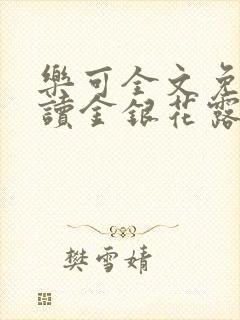 樂可全文免
讀金銀花露
樊雪婧